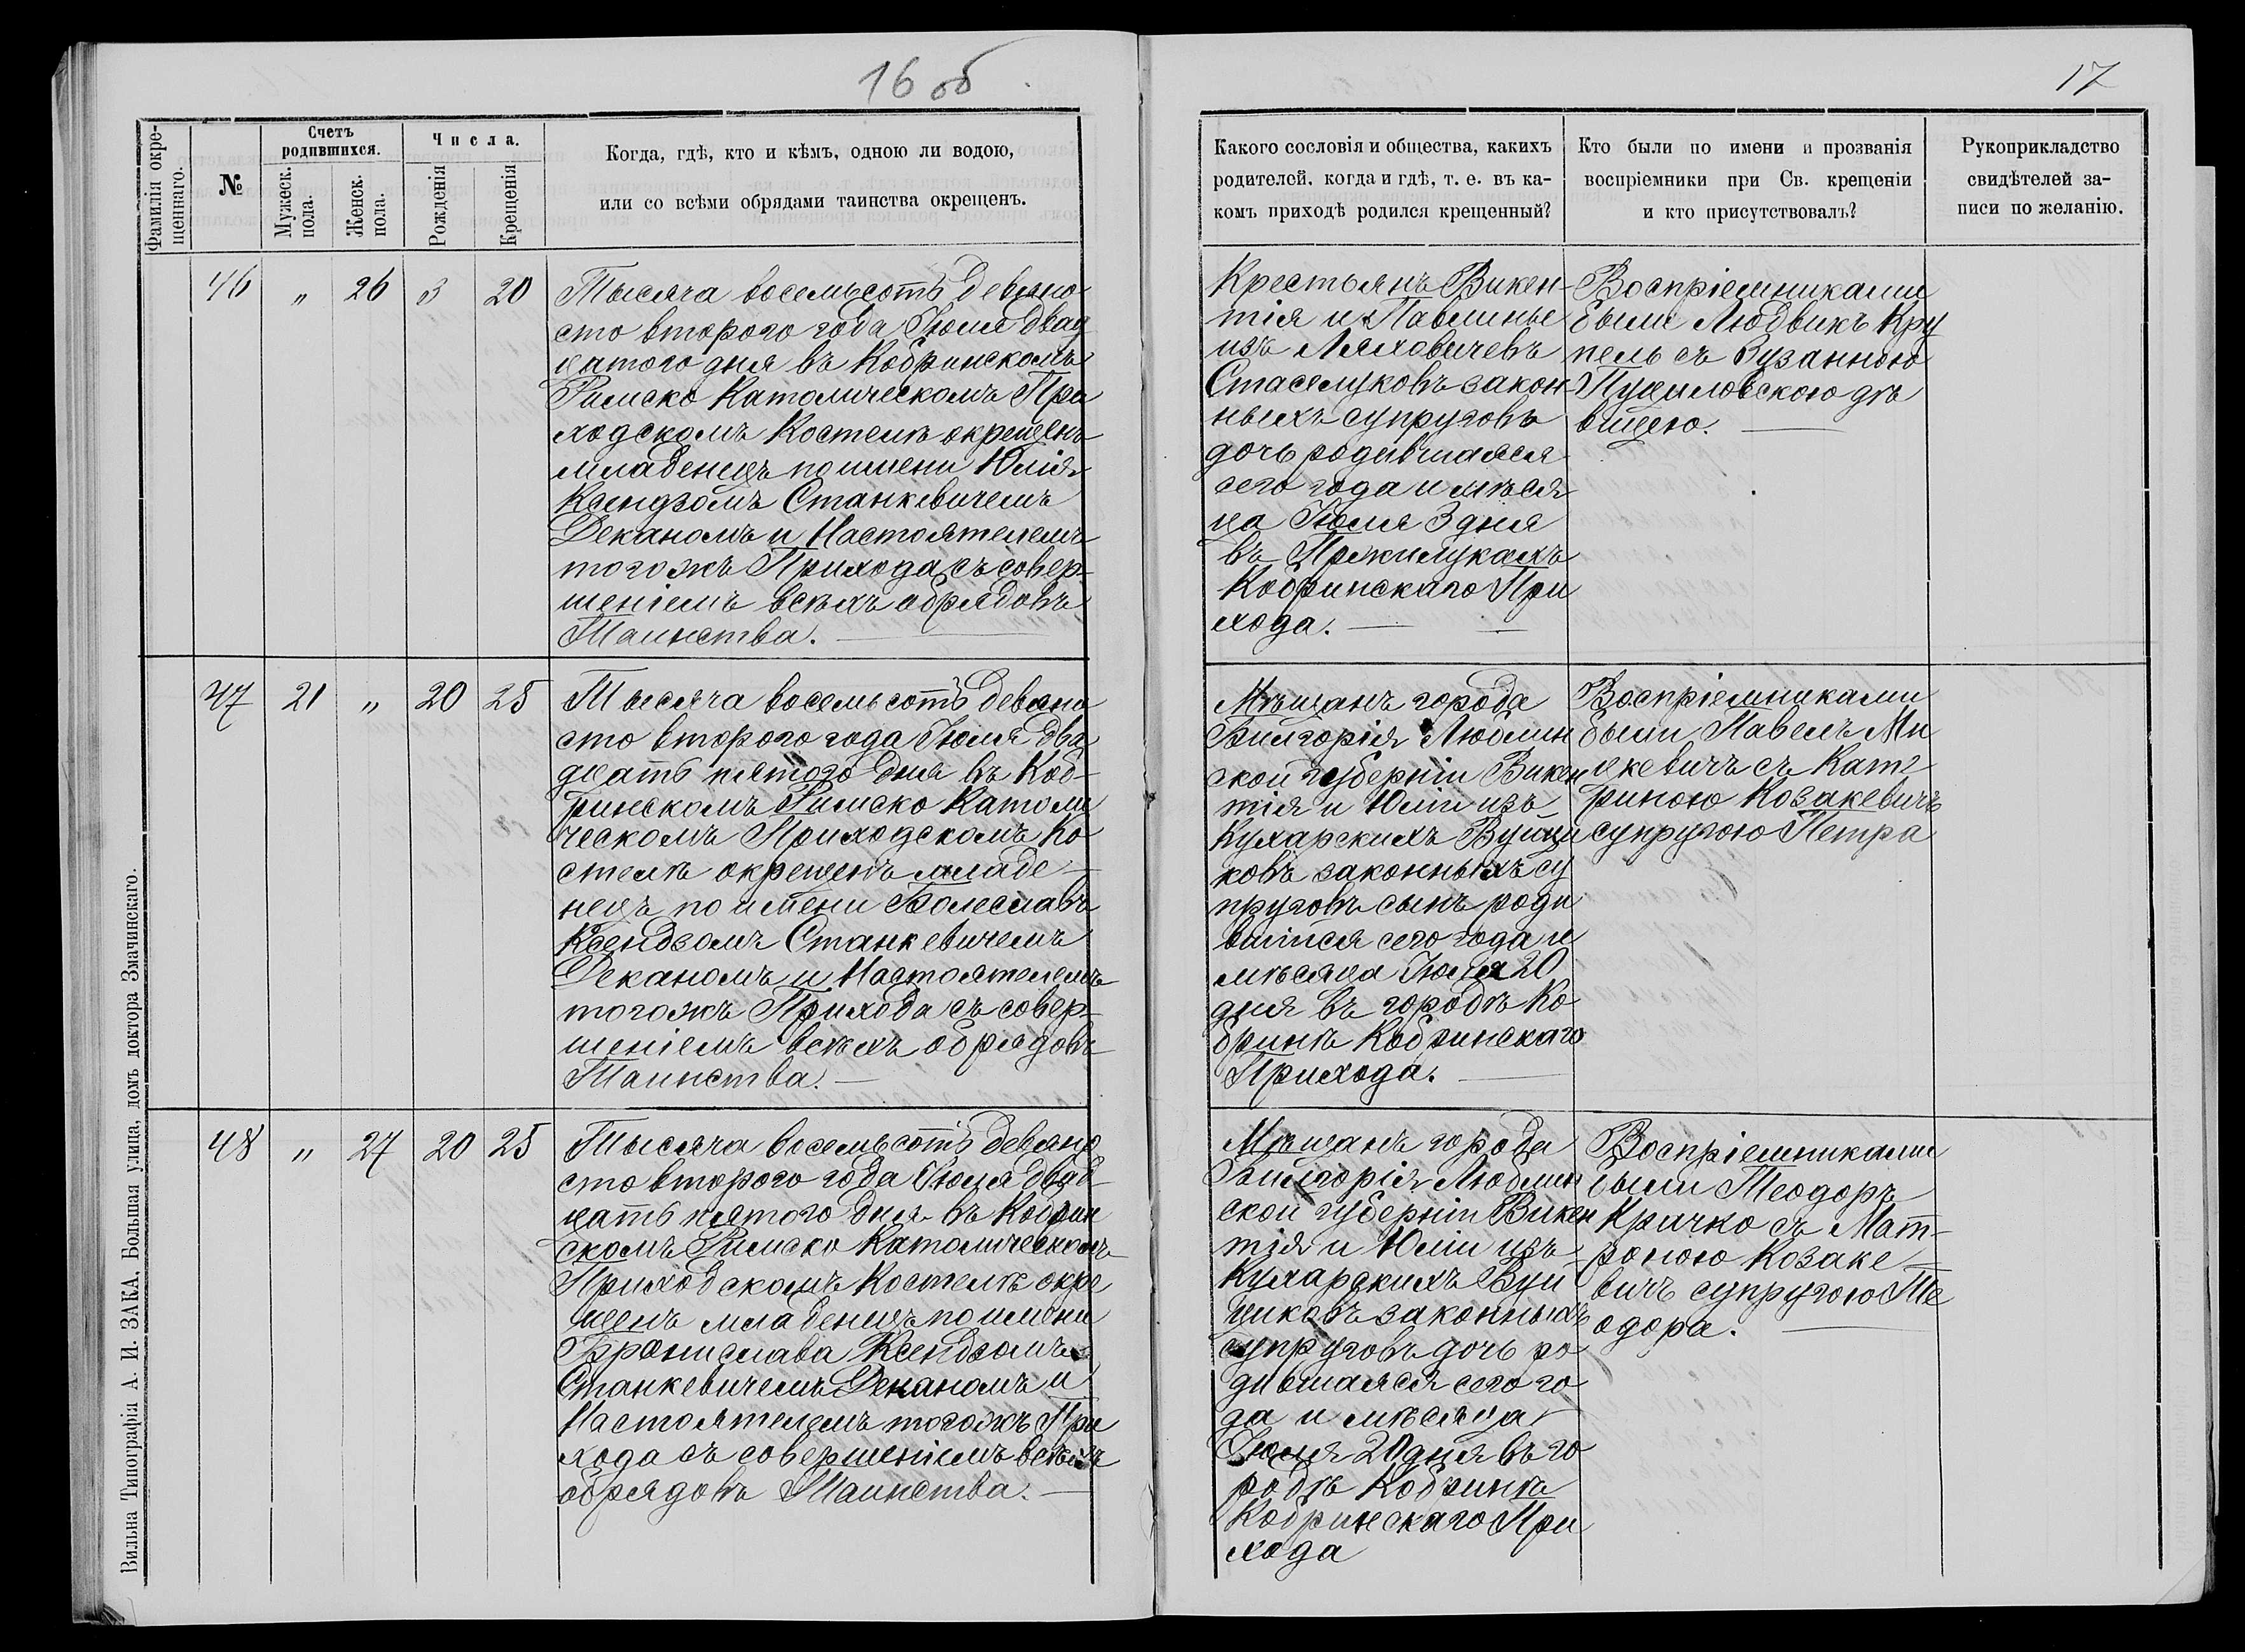 16 об.
17
Фамилія окре-
щеннаго.
№
Счетъ
родившихся.
Мужеск.
пола.
Женск.
пола.
Числа.
Рожденія
Крещенія
Когда, гдѣ, кто и кѣмъ, одною ли водою,
или со всѣми обрядами таинства окрещенъ.
Какого сословія и общества, какихъ
родителей, когда и гдѣ, т. е. въ ка-
комъ приходѣ родился крещенный?
Кто были по имени и прозванія
воспріемники при Св. крещеніи
и кто присутствовалъ?
Рукоприкладство
свидѣтелей за-
писи по желанію.
46 " 26 3 20
Тысяча восемьсотъ девяно
сто второго года Іюля двад
цатого дня въ Кобринскомъ
Римско Католическомъ При
ходскомъ Костелѣ окрещенъ
младенецъ по имени Юлія
Ксендзомъ Станкевичемъ
Деканомъ и Настоятелемъ
тогожъ Прихода съ совер-
шеніемъ всѣхъ обрядовъ
Таинства.
Крестьянъ Викен-
тія и Павлины
изъ Ляховичевъ
Стасюковъ закон
ныхъ супруговъ
дочь родившаяся
сего года и мѣся
ца Іюля 3 дня
въ
Кобринскаго При
хода.
Воспріемниками
были Людвикъ Кру
пель съ Зузанною
дѣ
вицею.
47 21 " 20 25
Тысяча восемьсотъ девяно
сто второго года Іюля два
дцать пятого дня въ Коб-
ринскомъ Римско Католи
ческомъ Приходскомъ Ко
стелѣ окрещенъ младе-
нецъ по имени Болеславъ
Ксендзомъ Станкевичемъ
Деканомъ и Настоятелемъ
тогожъ Прихода съ совер-
шеніемъ всѣхъ обрядовъ
Таинства.
Мѣщанъ города
Билгорія Люблин
ской губерніи Викен
тія и Юліи изъ
Кухарскихъ Вуйци
ковъ законныхъ су
пруговъ сынъ роди
вшійся сего года и
мѣсяца Іюля 20
дня въ городѣ Ко
бринѣ Кобринскаго
Прихода.
Воспріемниками
были Павелъ Ми
цкевичъ съ Кате
риною Козакевичъ
супругою Петра
48 " 27 20 25
Тысяча восемьсотъ девяно
сто второго года Іюля двад-
цать пятого дня въ Кобрин
скомъ Римско Католическомъ
Приходскомъ Костелѣ окре
щенъ младенецъ по имени
Бронислава Ксендзомъ
Станкевичемъ Деканомъ и
Настоятелемъ тогожъ При
хода съ совершеніемъ всѣхъ
обрядовъ Таинства.
Мѣщанъ города
Билгорія Люблин
ской губерніи Викен
тія и Юліи изъ
Кухарскихъ Вуй
циковъ законныхъ
супруговъ дочь ро
дившаяся сего го
да и мѣсяца
Іюля 20 дня въ го
родѣ Кобринѣ
Кобринскаго При
хода
Воспріемниками
были Теодоръ
Кричко съ Мат-
роною Козаке-
вичъ супругою Те
одора.
Вильна Типографія А. И. ЗАКА, Большая улица, домъ доктора Змачинскаго.